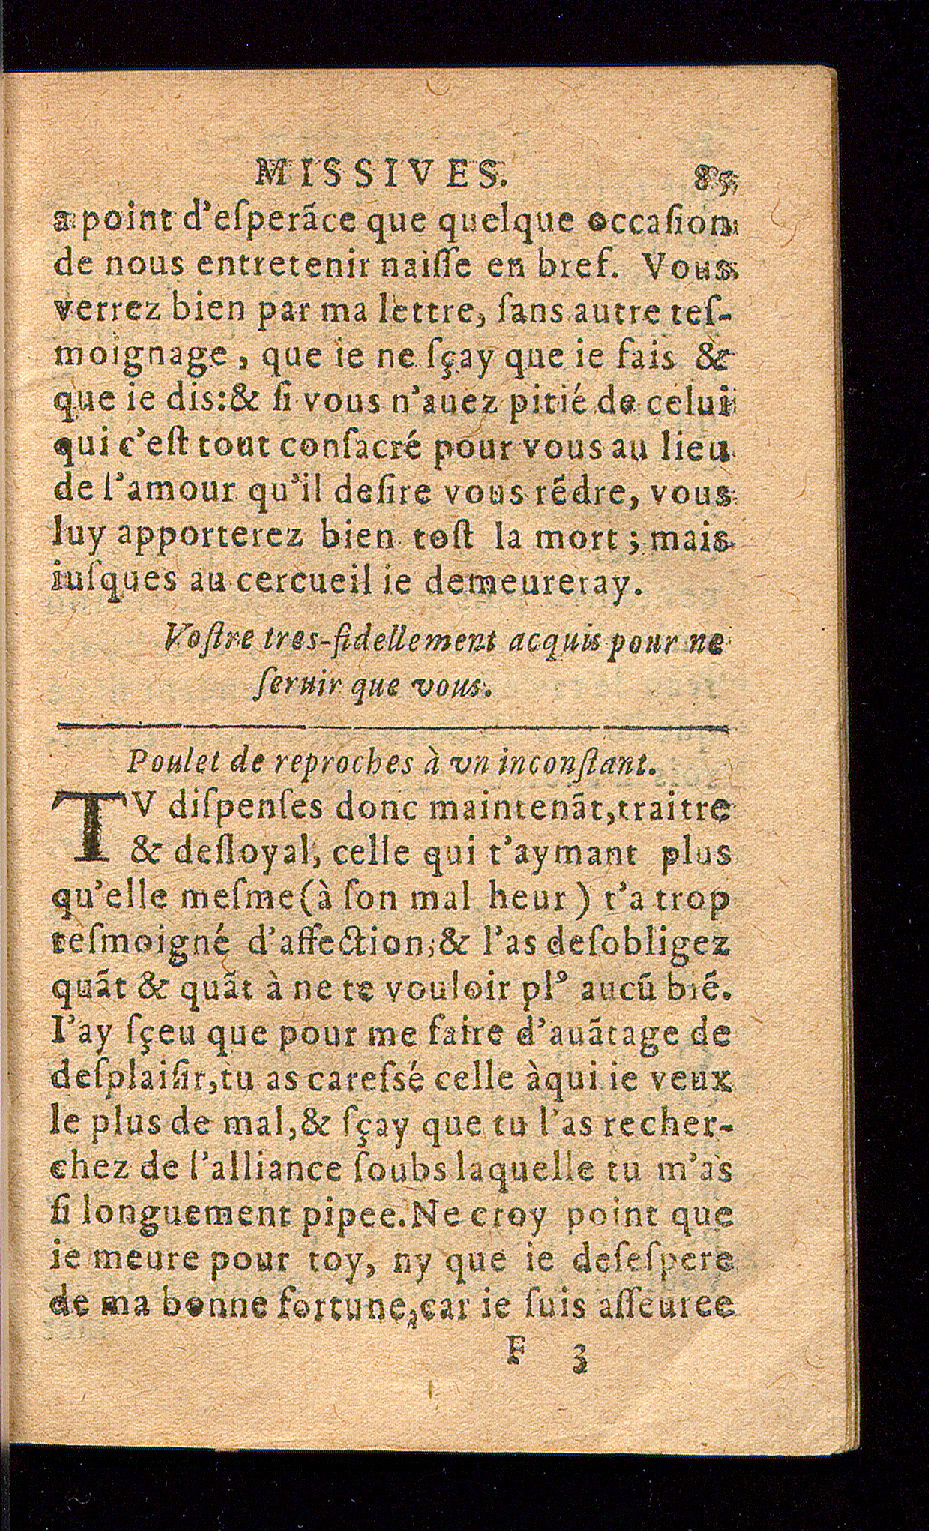 MISSIVES. 85
a point d'eſperãce que quelque occaſion
de nous entretenir naiſſe en bref. Vous
verrez bien par ma lettre, ſans autre teſ-
moignage, que ie ne ſçay que ie fais &
que ie dis:& ſi vous n'auez pitié de celui
qui c'eſt tout conſacré pour vous au lieu
de l'amour qu'il deſire vous rẽdre, vous
luy apporterez bien toſt la mort; mais
iuſques au cercueil ie demeureray.
Voſtre tres-fidellement acquis pour ne
ſeruir que vous.
Poulet de reproches à vn inconſtant.
TV diſpenſes donc maintenãt, traitre
& deſloyal, celle qui t'aymant plus
qu'elle meſme (à ſon mal heur) t'a trop
teſmoigné d'affection, & l'as deſobligez
quãt & quãt à ne te vouloir plꝰ aucũ biẽ.
I'ay ſçeu que pour me faire d'auãtage de
deſplaiſir, tu as careſsé celle àqui ie veux
le plus de mal, & ſçay que tu l'as recher-
chez de l'alliance ſoubs laquelle tu m'as
ſi longuement pipee. Ne croy point que
ie meure pour toy, ny que ie deſeſpere
de ma bonne fortune, car ie ſuis aſſeuree
F 3